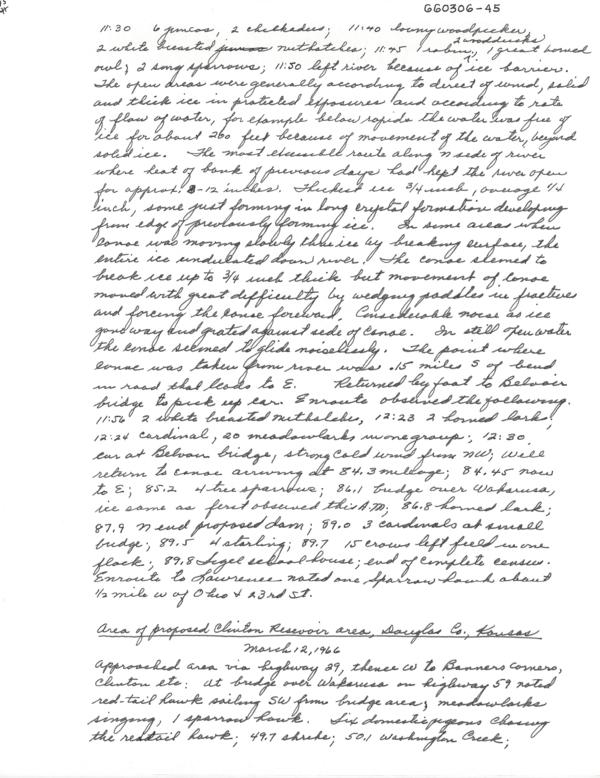 GG0306-45
11:30 6 juncos, 2 chickadees; 11:40 downy woodpecker,
2 white breasted nuthatches; 11:45 1 robin, 2 wood ducks, 1 great horned
owl; 2 song sparrows; 11:50 left river because of ice barrier.
The open areas were generally according to direct of wind, solid
and thick ice in protected exposures and according to rate
of flow of water, for example below rapids the water was free of
ice for about 260 feet because of movement of the water, beyond
solid ice. The most accessible route along N side of river
where heat of bank of previous days had kept the river open
for approx. 8-12 inches. Thickest ice 3/4 inch, average 1/4
inch, some just forming in long crystal formation developing
from edge of previously forming ice. In some areas when
canoe was moving slowly thru ice by breaking surface, the
entire ice undulated down river. The canoe seemed to
break ice up to 3/4 inch thick but movement of canoe
moved with great difficulty by wedging paddles in fractures
and forcing the canoe foreward. Considerable noise as ice
gave way and grated against side of canoe. In still open water
the canoe seemed to glide noiselessly. The point where
canoe was taken from river was .15 miles S of bend
in road that leads to E. Returned by foot to Belvoir
bridge to pick up car. Enroute observed the following.
11:56 2 white breasted nuthatches, 12:23 2 horned lark;
12:24 cardinal, 20 meadowlarks in one group; 12:30
car at Belvoir bridge, strong cold wind from NW; will
return to canoe arriving at 84.3 mileage; 84.45 now
to E; 85.2 4 tree sparrows; 86.1 bridge over Wakarusa,
ice same as first observed this A.M; 86.8 horned lark;
87.9 N end proposed dam; 89.0 3 cardinals at small
bridge; 89.5 4 starling; 89.7 15 crows left field in one
flock; 89.8 Sigel school house; end of complete census.
Enroute to Lawrence noted one sparrow hawk about
1/2 mile W of Ohio & 23rd St.
Area of proposed Clinton Resevoir area, Douglas Co., Kansas
March 12, 1966
Approached area via highway 59, thence W to Banners corners,
Clinton etc. At bridge over Wakarusa on highway 59 noted
red-tail hawk sailing SW from bridge area; meadowlarks
singing, 1 sparrow hawk. Six domestic pigeons chasing
the redtail hawk; 49.7 shrike; 50.1 Washington Creek;